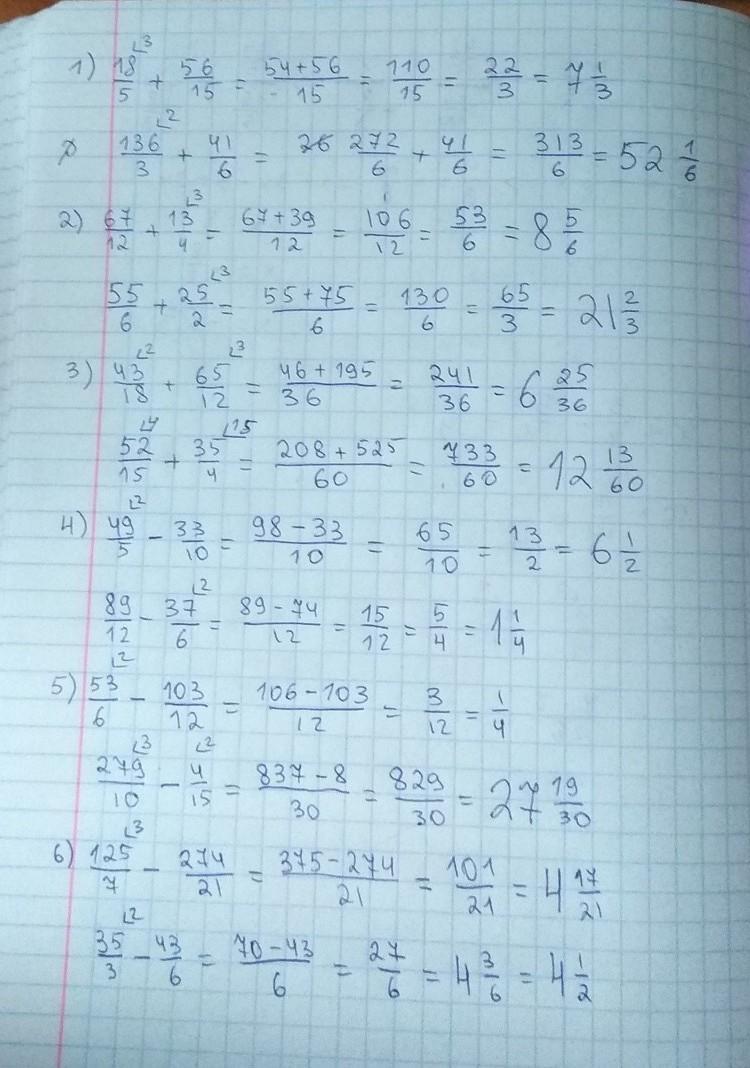 1) 18/5 ⌊3 + 56/15 = 54+56/15 = 110/15 = 22/3 = 7 1/3
136/3 ⌊2 + 41/6 = 272/6 + 41/6 = 313/6 = 52 1/6
2) 67/12 + 13/4 ⌊3 = 67+39/12 = 106/12 = 53/6 = 8 5/6
55/6 + 25/2 ⌊3 = 55+75/6 = 130/6 = 65/3 = 21 2/3
3) 43/18 ⌊2 + 65/12 ⌊3 = 46+195/36 = 241/36 = 6 25/36
52/15 ⌊4 + 35/4 ⌊15 = 208+525/60 = 733/60 = 12 13/60
4) 49/5 ⌊2 - 33/10 = 98-33/10 = 65/10 = 13/2 = 6 1/2
89/12 - 37/6 ⌊2 = 89-74/12 = 15/12 = 5/4 = 1 1/4
5) 53/6 ⌊2 - 103/12 = 106-103/12 = 3/12 = 1/4
279/10 ⌊3 - 4/15 ⌊2 = 837-8/30 = 829/30 = 27 19/30
6) 125/7 ⌊3 - 274/21 = 375-274/21 = 101/21 = 4 17/21
35/3 ⌊2 - 43/6 = 70-43/6 = 27/6 = 4 3/6 = 4 1/2